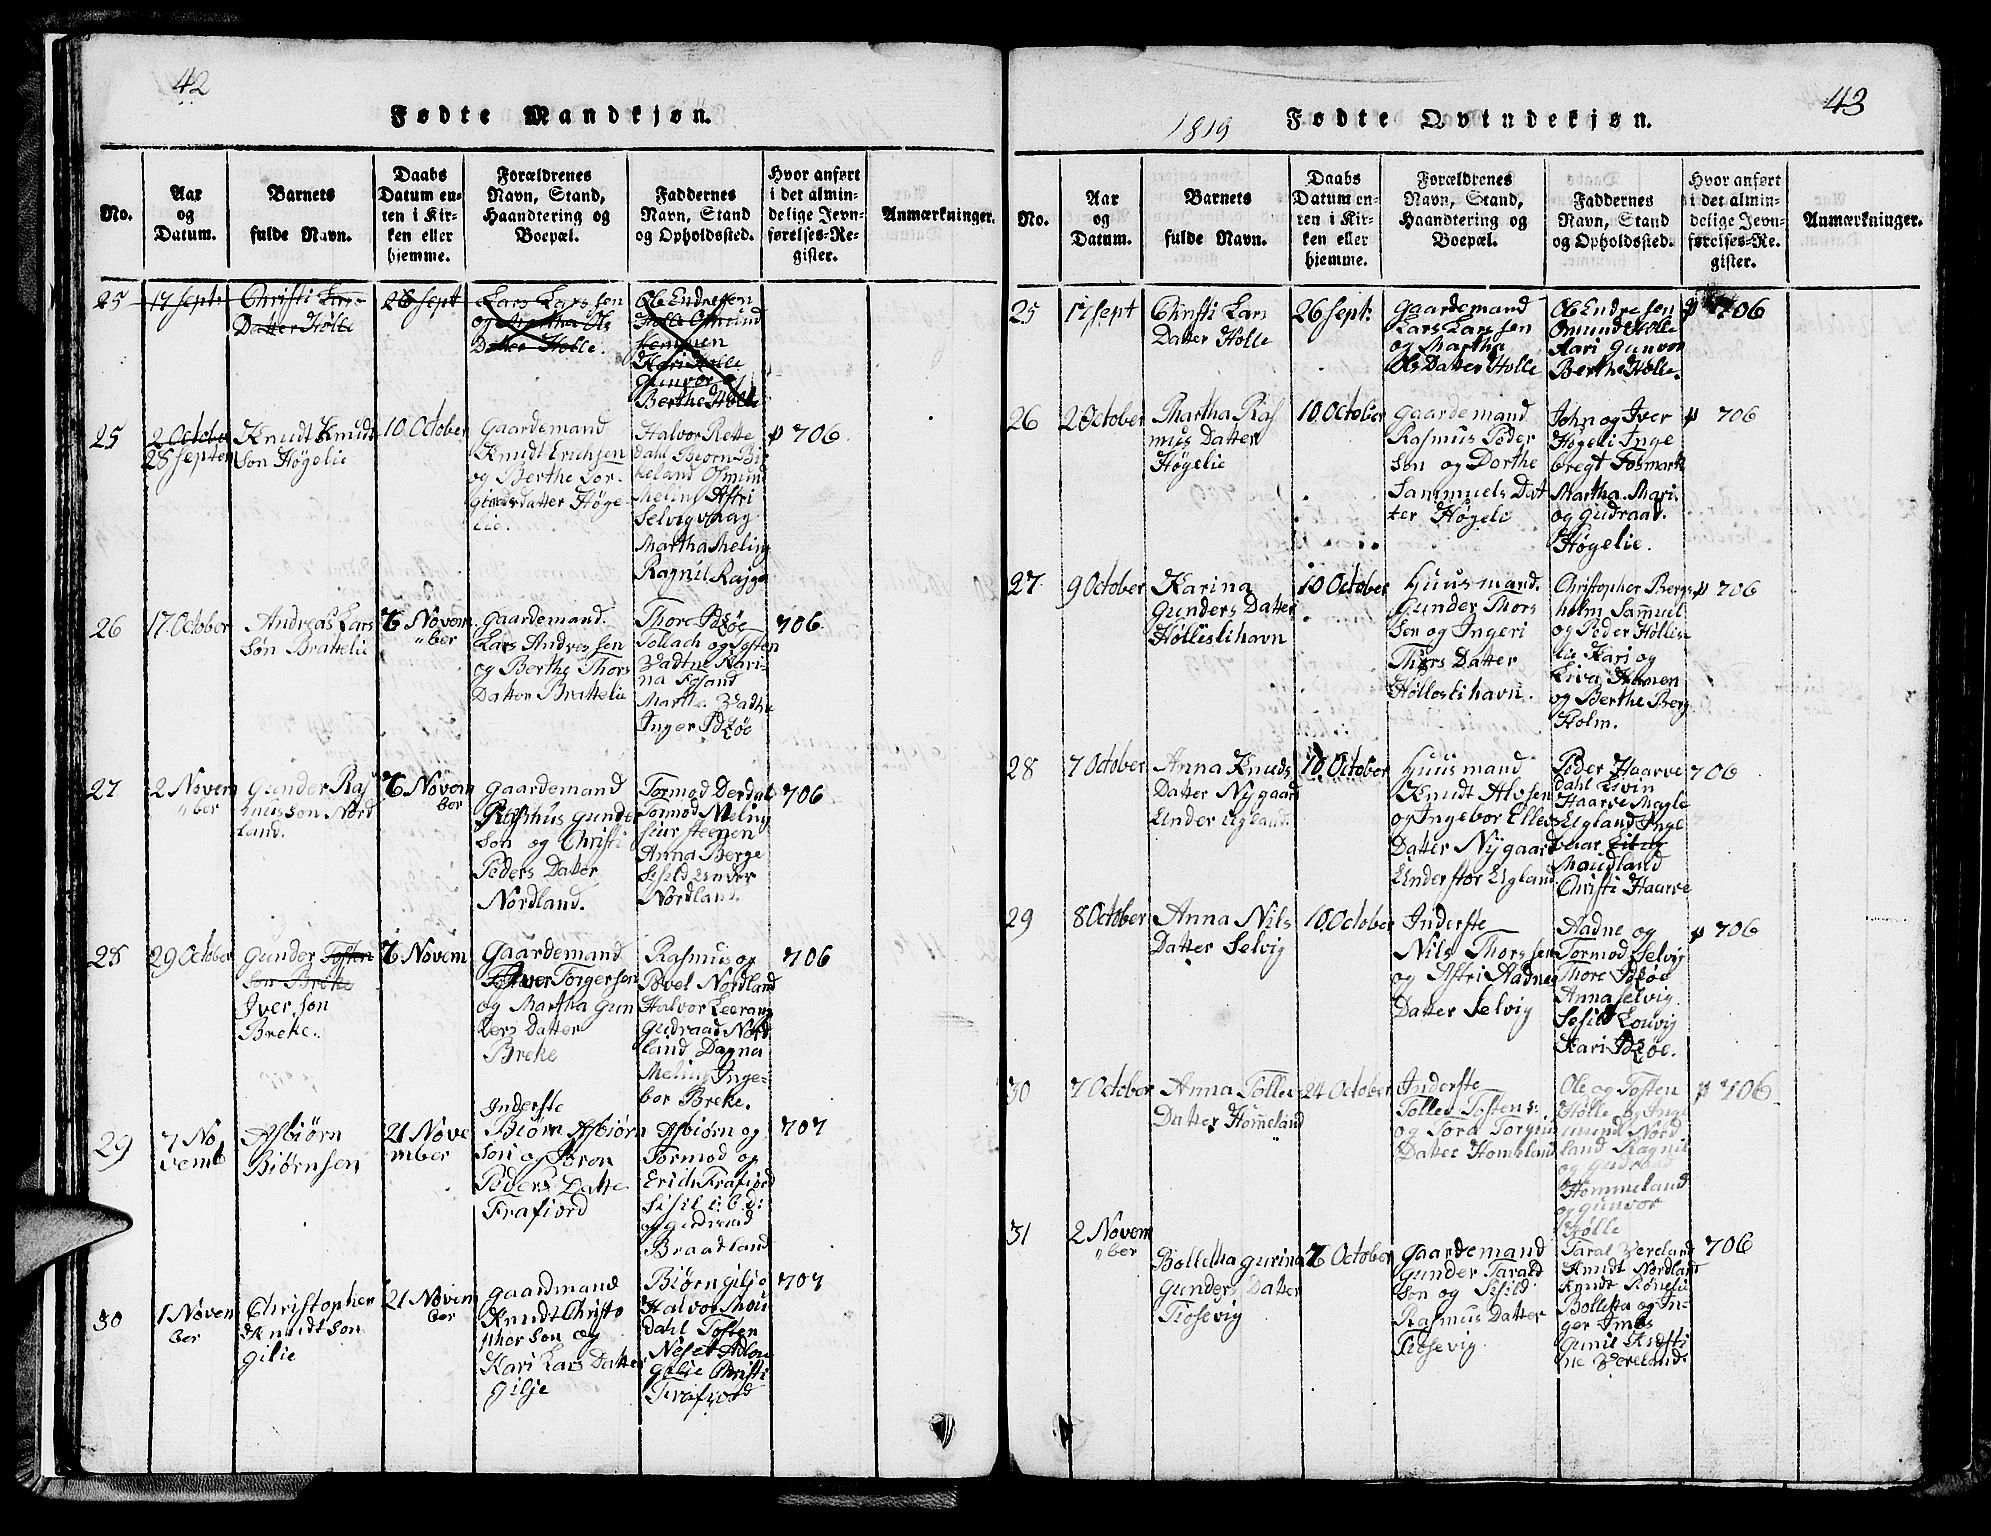 42
Fødte Mandkjøn.
No.
Aar
og
Datum.
Barnets
fulde Navn.
Daabs
Datum en-
ten i Kir-
ken eller
hjemme.
Forældrenes
Navn, Stand,
Haandtering og
Boepæl.
Faddernes
Navn, Stand
og Opholdssted.
Hvor anført
i det almin-
delige Jevn-
førelses-Re-
gister.
Anmærkninger.
25
17 sept:
Christi Lars
Datter Hølle
26 sept
Lars Lars sen
og Martha Ols
Datter Hølle.
Ole Endresen
Hølle Osmund
Kari Hølle
Gunvor og
Berthe Hølle
25
2 October
28 Septem
Knudt Knudt
Søn Høgelie
10 October
Gaardemand
Knudt Erichsen
og Berthe Tor-
giersdatter Høge
lie.
Halvor Rette
dahl Beorn Bir
keland Osmun
Meling Astri
Selvigvaag
Martha Meling
Ragnil Rajge
p 706
26
17 October
Andreas Lars
Søn Brattelie
7 Novem
ber
Gaardemand.
Lars Andres sen
og Berthe Thors
Datter Brattelie
Thore Idzøe
Tollach og Tosten
Vadtne Kari-
na Fosand
Martha Vadtne
Inger Idzøe
706
27
2 Novem
ber
Gunder Ras
musson Nord
land.
7 Novem
ber
Gaardemand
Rasmus Gunder
Søn og Christi
Peders Datter
Nordland.
Tormod Derdal
Tormod Meling
siur steenen
Anna Berge
Sesild Under
Nordland.
706
28
29 October
Gunder Tosten
Søn Breke
Iver søn
Breke.
7 Novem
Gaardemand
Iver Torgersen
og Martha Gun
ders Datter
Breke
Rasmus og
Povel Nordland
Halvor Leerang
Gudraad Nord
land Dagna
Meling Inge-
bor Breke.
706
29
7 No
vemb
Asbiørn
Biørnsen
21 Nove
mber
Inderste
Biørn Asbiørn
Søn og Joron
Peders Datte
Frafiord
Asbiørn og
Tormod og
Erich Frafiord
Sisil i: b: d:
og Gudraad
Braadland
707
30
1 Novem
ber
Christopher
Knudtson
Gilie
21 Novem
ber
Gaadmand
Knudt Christo
pher søn og
Kari Lars Datter
Gilje
Biørn Gilje
Halvor Moi
dahl Tosten
Neset Adlou
Gilje Christi
Frafjord
707
1819
Fødte Qvindekjøn.
43
No.
Aar
og
Datum.
Barnets
fulde Navn.
Daabs
Datum en-
ten i Kir-
ken eller
hjemme.
Forældrenes
Navn, Stand,
Haandtering og
Boepæl.
Faddernes
Navn, Stand
og Opholdssted.
Hvor anført
i det almin-
delige Jevn-
førelses-Re-
gister.
Anmærkninger.
25
17 sept
Christi Lars
Datter Hølle
26 sept:
Gaardemand
Lars Lars sen
og Martha
Ols Datter Hølle
Ole Endresen
Osmund Hølle
Kari Gunvor
Berthe Hølle.
p 706
26
2 October
Martha Ras
mus Datter
Høgelie
10 October
Gaardemand
Rasmus Peder
Søn og Dorthe
Sammuels Dat
ter Høgeli
John og Iver
Høgeli Inge
bregt Fosmark
Martha Mari
og Gudraad
Høgelie.
p 706
27
9 October
Karina
Gunders Datter
Høllislihavn
10 October
Huusmand.
Gunder Thors
Sen og Ingeri
Thors Datter
Hølleslihavn.
Christopher Bergs
holm Sammuel
og Peder Høllis
lie Kari og
Liva Holmen
og Berthe Berg
Holm.
p 706
28
7 October
Anna Knuds
Datter Nygaard
Under Ugland.
10 October
Huusmand
Knudt Alvsen
og Ingebor Ellevs
Datter Nygaard
Under stor Ugland
Peder Haarve
Dahl Elvin
Haarve Magle
Ugland Inge
boar
Maudland
Christi Haarve
706
29
8 October
Anna Nils
Datter Selvig
10 October
Inderste
Nils Thorssen
og Astri Aadnes
Datter Selvig
Aadne og
Tormod Selvig
Thore Idzøe
Anna Selvig
Sesild Louvig
Kari Idzøe.
p 706
30
7 October
Anna Tolle
Datter Hommeland
24 October
Inderste
Tollev Tostens:
og Tora Torgiu
Datter Homeland
Ole og Tosten
Hølle og Inge
mund Nord
land Ragnil
og Gudraad
Hommeland
og Gunvor
Hølle
p 706
31
2 Novem
ber
Bolletha Gurina
Gunders Datter
Fiosevig
7 October
Gaardemand
Gunder Tarald
Søn og Sisild
Rasmus Datter
Fiosevig.
Taral Vereland
Knudt Nordland
Knudt Rønelie
Bolletta og In-
ger Imbs
Gunil Kristi
ne Vereland.
706